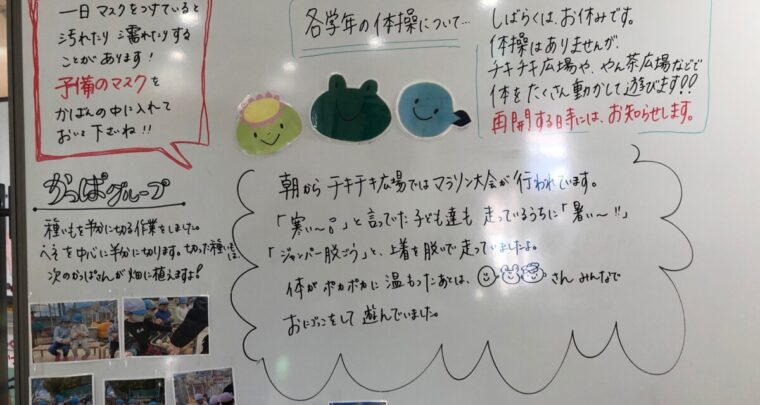 一日 マスクをつけていると
汚れたり 濡れたりする
ことがあります!
予備のマスクを
かばんの中に入れて
おいて下さいね!!
各学年の体操について…
しばらくは、お休みです。
体操はありませんが、
チキチキ広場や、やん茶広場などで
体をたくさん動かして遊びます!!
再開する時には、お知らせします。
かっぱグループ
種いもを半分に切る作業をしました。
へそを中心に半分に切ります。切った種いもは、
次のかっぱさんが畑に植えますよ!
朝から チキチキ広場では マラソン大会が 行われています。
「寒い〜。」と言っていた子ども達も 走っているうちに「暑い〜!!」
「ジャンパー脱ごう」と、上着を脱いで走っていましたよ。
体が ポカポカに 温もったあとは、さん みんなで
おにごっこをして 遊んでいました。